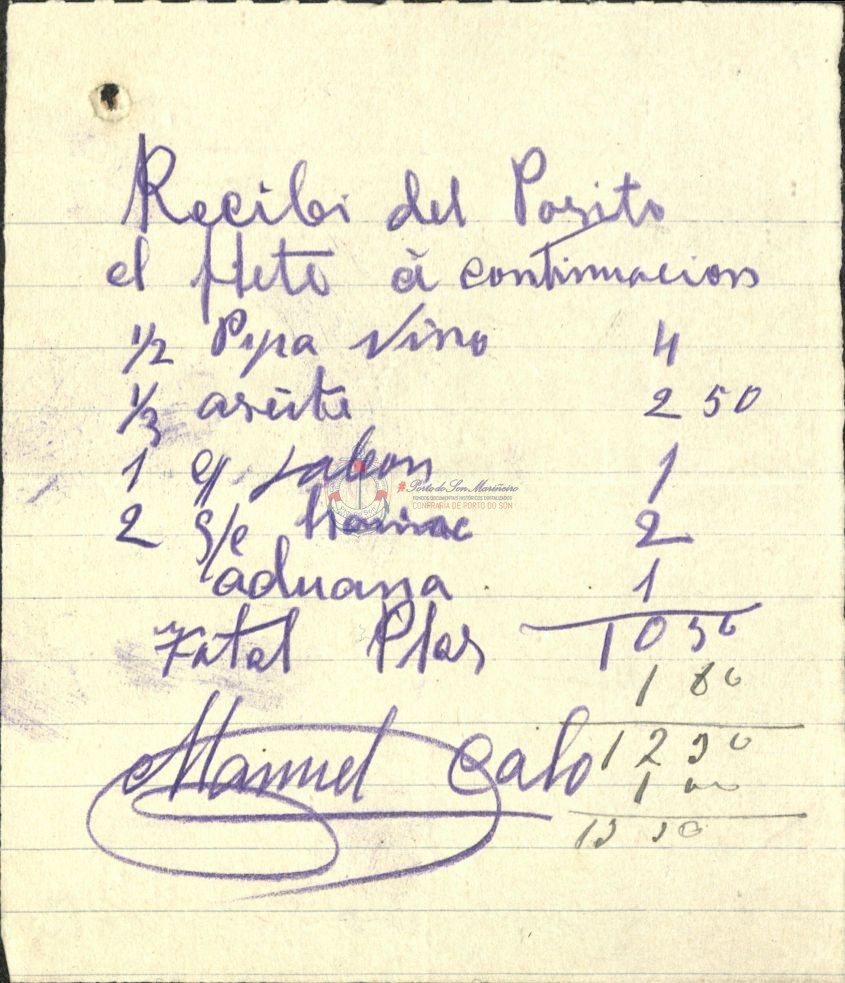 Recibi del Posito
el flete à continuacion
1/2 Pypa Vino 4
1/3 aseite 2 50
1 c/ jabon 1
2 s/e 2
aduana 1
Total Ptas 10 50
1 80
Manuel Calo 12 30
1 00
13 30
#Porto do Son Mariñeiro
FONDOS DOCUMENTAIS HISTÓRICOS DIXITALIZADOS
CONFRARÍA DE PORTO DO SON